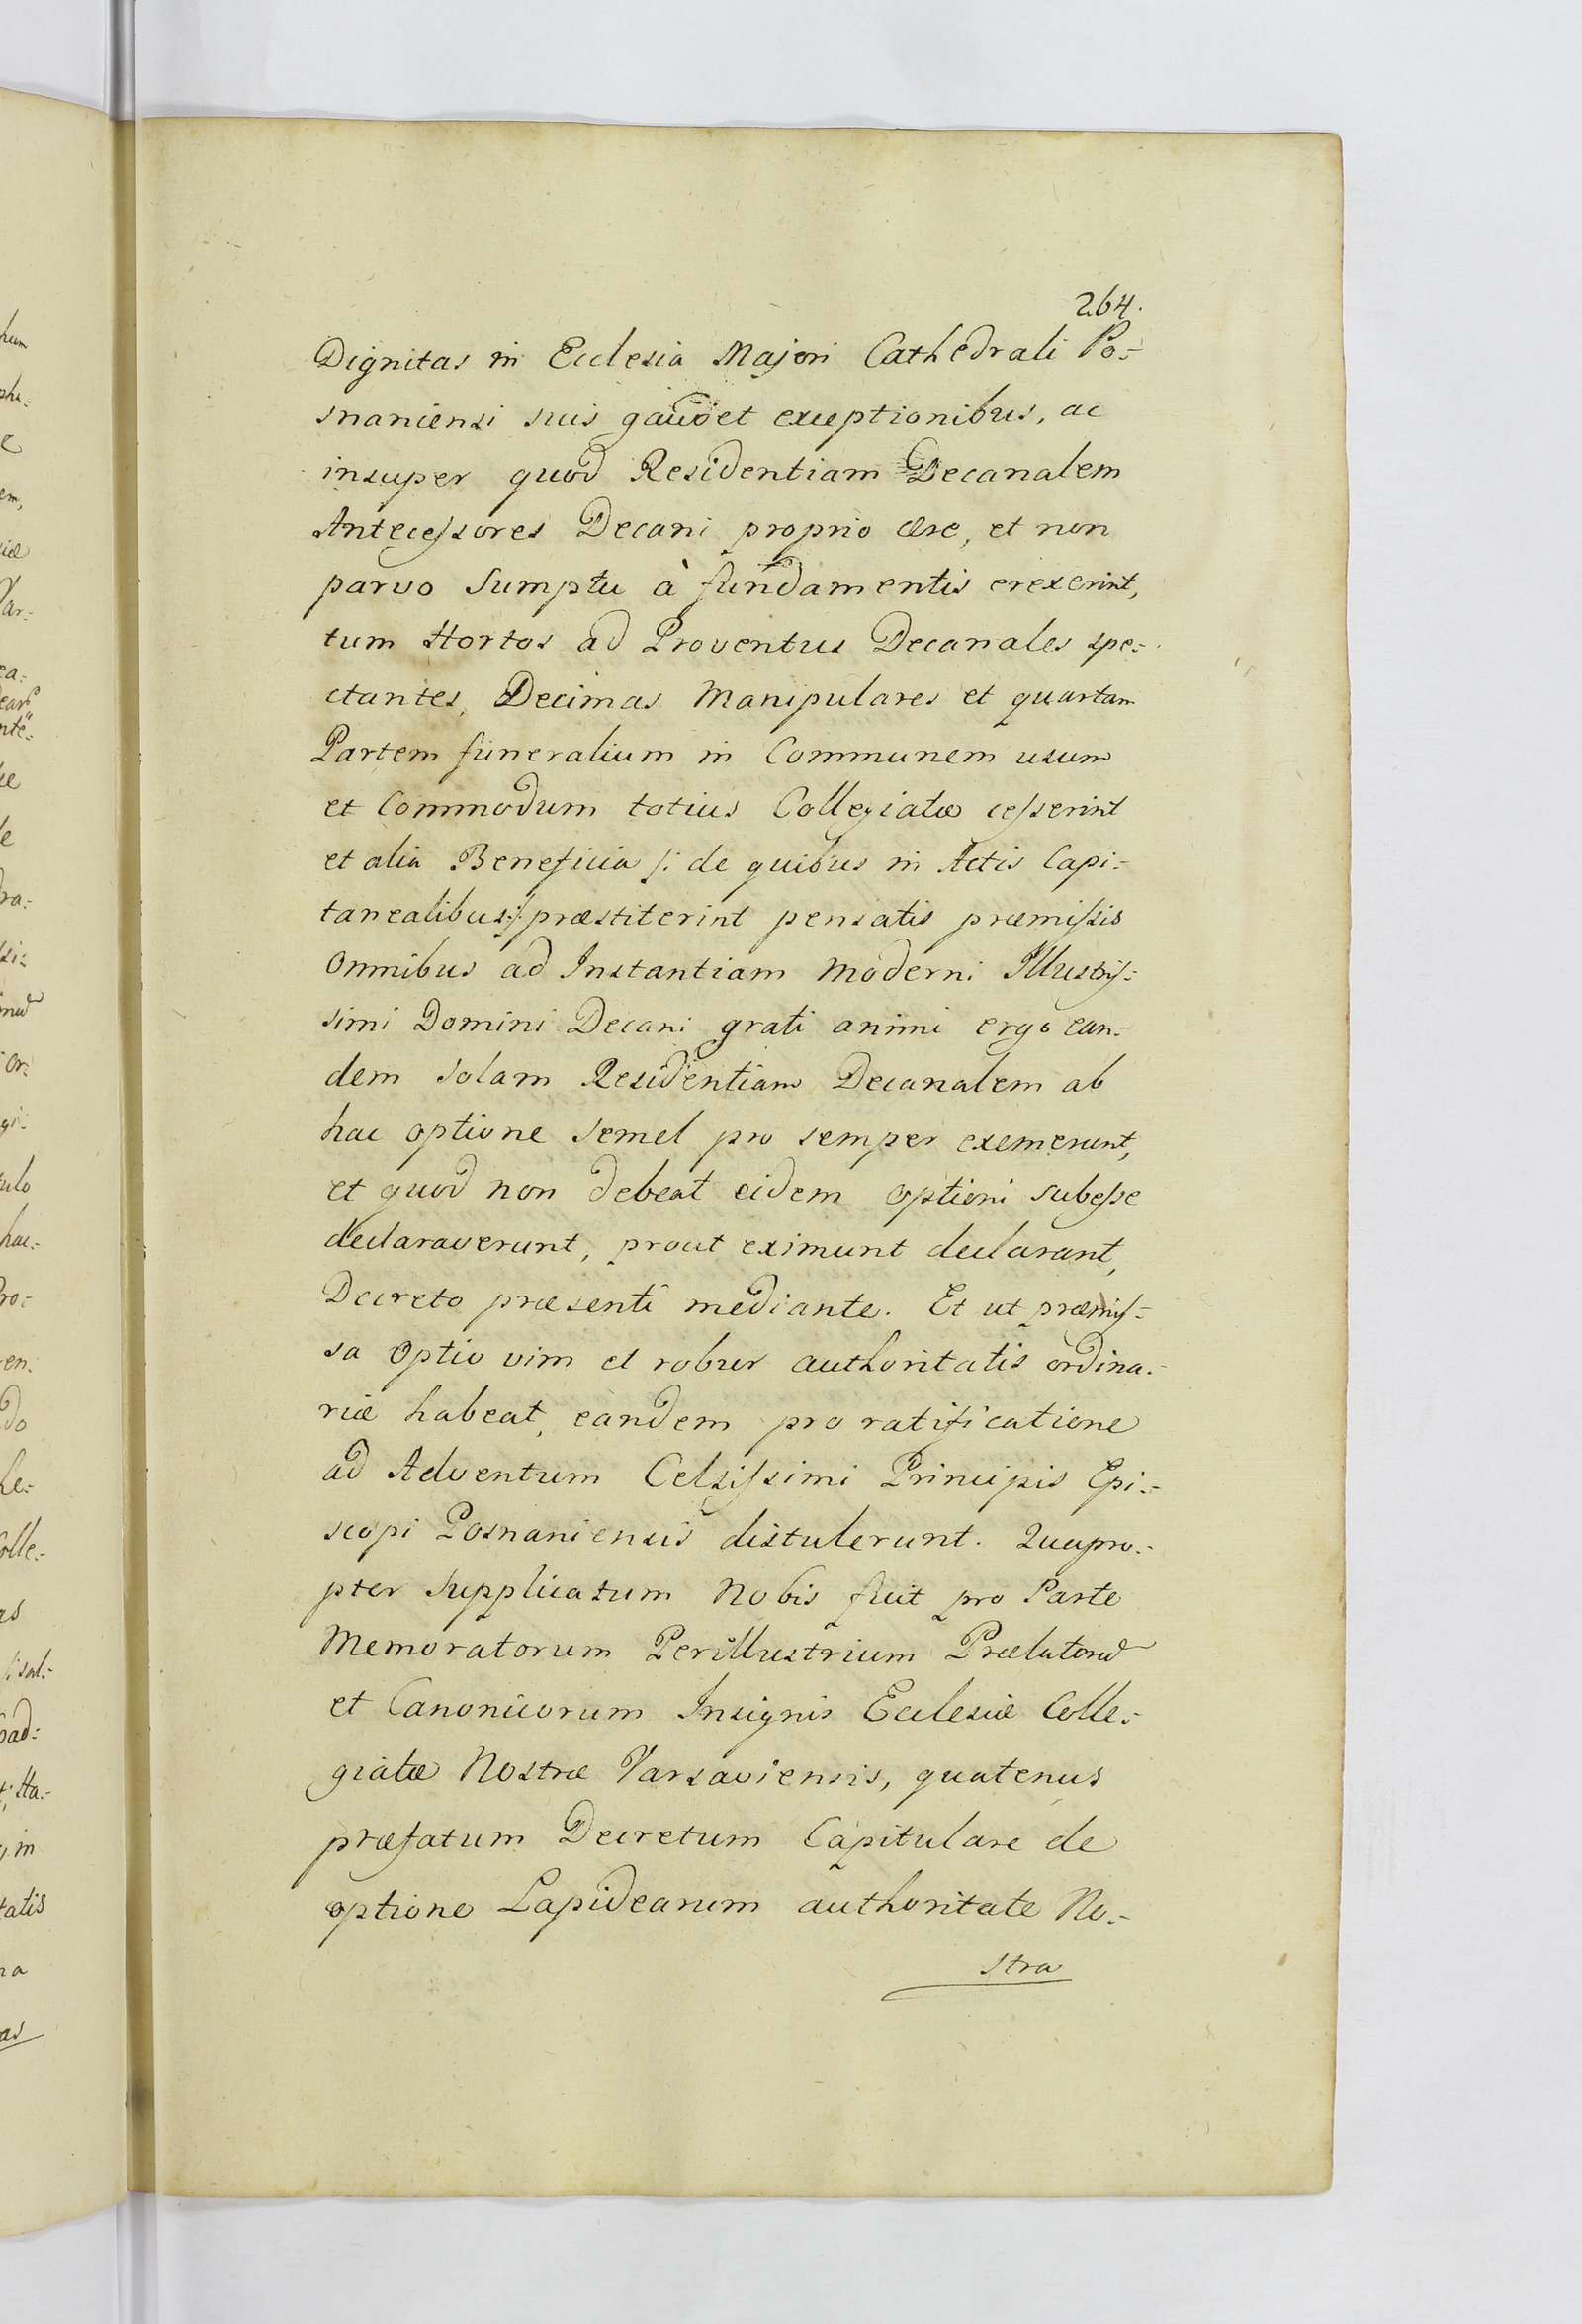 264.
Dignitas in Ecclesia Majori Cathedrali Po=
snaniensi suis gaudet exceptionibus, ac
insuper quod Residentiam Decanalem
Antecessores Decani proprio ære, et non
parvo Sumptu à fundamentis erexerint,
tum Hortos ad Proventus Decanales spe=
ctantes, Decimas Manipulares et quartam
Partem funeralium in Communem usum
et Commodum totius Collegiatæ cesserint
et alia Beneficia /: de quibus in Actis Capi=
tanealibus :/ præstiterint pensatis præmissis
Omnibus ad Instantiam Moderni Illustris=
simi Domini Decani grati animi ergo ean=
dem solam Residentiam Decanalem ab
hac optione semel pro semper exemerunt,
et quod non debeat eidem optioni subesse
declaraverunt, prout eximunt declarant,
Decreto præsenti mediante. Et ut præmis=
sa Optio vim et robur authoritatis ordina=
riæ habeat, eandem pro ratificatione
ad Adventum Celsissimi Principis Epi=
scopi Posnaniensis distulerunt. Quapro=
pter Supplicatum Nobis fuit pro Parte
Memoratorum Perillustrium Prælatorum
et Canonicorum Insignis Ecclesiæ Colle=
giatæ Nostræ Varsaviensis, quatenus
præfatum Decretum Capitulare de
optione Lapidearum authoritate No=
stra